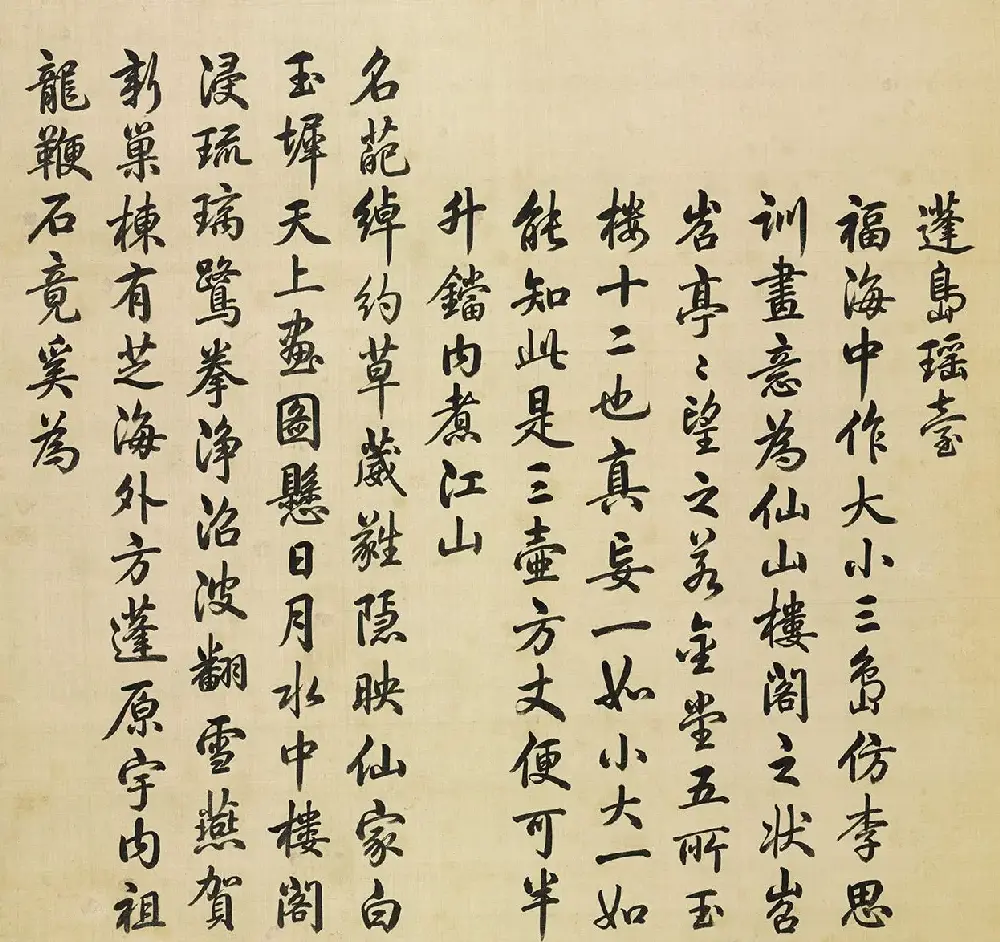 蓬島瑶臺
福海中作大小三島仿李思
訓畫意為仙山樓閣之狀岧
岧亭〻望之若金堂五所玉
楼十二也真妄一如小大一如
能知此是三壺方丈便可半
升鐺内煮江山
名葩綽約草葳蕤隱映仙家白
玉墀天上畫圖懸日月水中樓閣
浸琉璃鷺拳淨沼波翻雪燕賀
新巢棟有芝海外方蓬原宇内祖
龍鞭石竟奚為